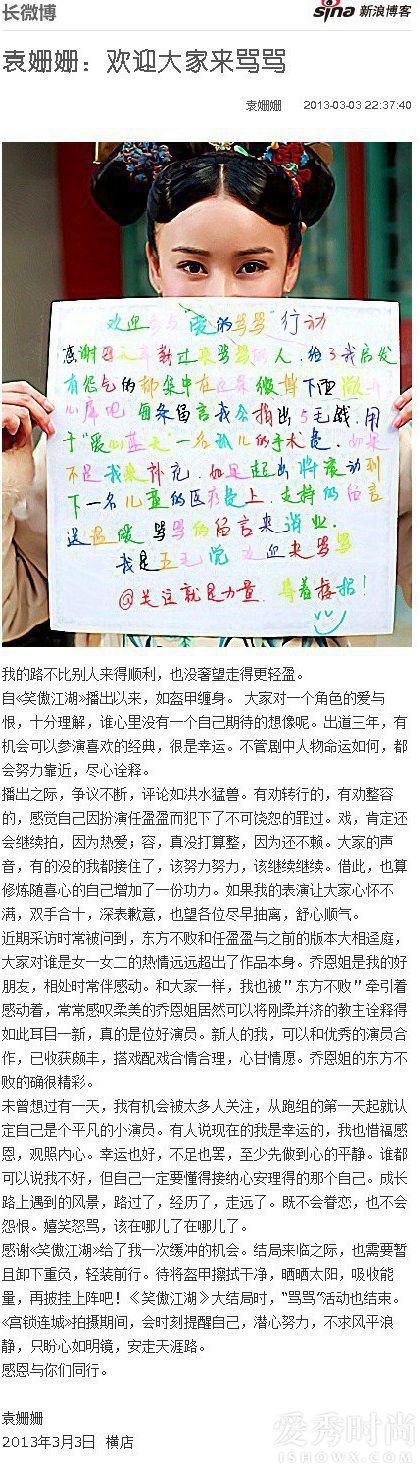 长微博
sina 新浪博客
袁姗姗：欢迎大家来骂骂
袁姗姗 2013-03-03 22:37:40
欢迎参与"爱的骂骂"行动
感谢每天辛勤过来骂骂的人，给了我启发
有怨气的都集中在这条微博下面
心库吧 每条留言我会捐出5毛钱，用
于"爱心蓝天"一名孤儿的手术费，如果
不足我来补充，如果超出将滚动到
下一名儿童的医疗费上，支持的留言
送温暖 骂骂的留言来消业.
我是五毛党 欢迎来骂骂
@关注就是力量，等着捂招！
我的路不比别人来得顺利，也没奢望走得更轻盈。
自《笑傲江湖》播出以来，如盔甲缠身。 大家对一个角色的爱与
恨，十分理解，谁心里没有一个自己期待的想像呢。出道三年，有
机会可以参演喜欢的经典，很是幸运。不管剧中人物命运如何，都
会努力靠近，尽心诠释。
播出之际，争议不断，评论如洪水猛兽。有劝转行的，有劝整容
的，感觉自己因扮演任盈盈而犯下了不可饶恕的罪过。戏，肯定还
会继续拍，因为热爱；容，真没打算整，因为还不赖。大家的声
音，有的没的我都接住了，该努力努力，该继续继续。借此，也算
修炼随喜心的自己增加了一份功力。如果我的表演让大家心怀不
满，双手合十，深表歉意，也望各位尽早抽离，舒心顺气。
近期采访时常被问到，东方不败和任盈盈与之前的版本大相迳庭，
大家对谁是女一女二的热情远远超出了作品本身。乔恩姐是我的好
朋友，相处时常伴感动。和大家一样，我也被"东方不败"牵引着
感动着，常常感叹柔美的乔恩姐居然可以将刚柔并济的教主诠释得
如此耳目一新，真的是位好演员。新人的我，可以和优秀的演员合
作，已收获颇丰，搭戏配戏合情合理，心甘情愿。乔恩姐的东方不
败的确很精彩。
未曾想过有一天，我有机会被太多人关注，从跑组的第一天起就认
定自己是个平凡的小演员。有人说现在的我是幸运的，我也惜福感
恩，观照内心。幸运也好，不足也罢，至少先做到心的平静。谁都
可以说我不好，但自己一定要懂得接纳心安理得的那个自己。成长
路上遇到的风景，路过了，经历了，走远了。既不会眷恋，也不会
怨恨。嬉笑怒骂，该在哪儿了在哪儿了。
感谢《笑傲江湖》给了我一次缓冲的机会。结局来临之际，也需要暂
且卸下重负，轻装前行。待将盔甲擦拭干净，晒晒太阳，吸收能
量，再披挂上阵吧！《笑傲江湖》大结局时，"骂骂"活动也结束。
《宫锁连城》拍摄期间，会时刻提醒自己，潜心努力，不求风平浪
静，只盼心如明镜，安走天涯路。
感恩与你们同行。
袁姗姗
2013年3月3日 横店
爱秀时尚
ISHOWX.COM